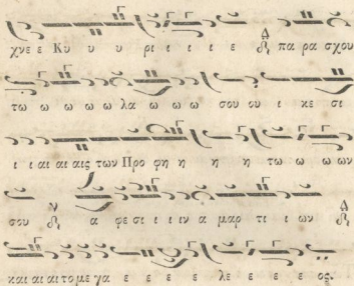 χνε ε Κυ υ υ ρι ι ι ι ε πα ρα σχου
τω ω ω ω λα ω ω ω σου ου ι κε σι
ι ι αι αι αις των Προ φη η η η τω ω ω ων
σου α φε σι ι ι ιν α μαρ τι ι ων
και αι αι το με γα ε ε ε ε λε ε ε ε ος.